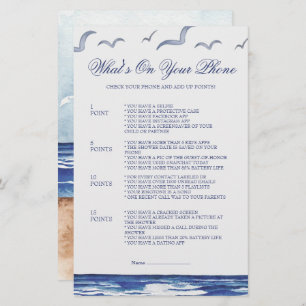 What's On Your Phone
CHECK YOUR PHONE AND ADD UP POINTS!
1
POINT
* YOU HAVE A SELFIE
* YOU HAVE A PROTECTIVE CASE
* YOU HAVE FACEBOOK APP
* YOU HAVE INSTAGRAM APP
* YOU HAVE A SCREENSAVER OF YOUR
CHILD OR PARTNER
5
POINTS
* YOU HAVE MORE THAN 5 KID'S APPS
* THE SHOWER DATE IS SAVED ON YOUR
PHONE
* YOU HAVE A PIC OF THE GUEST-OF-HONOR
* YOU HAVE USED SNAPCHAT TODAY
* YOU HAVE MORE THAN 80% BATTERY LIFE
10
POINTS
* FOR EVERY CONTACT LABELED DR
* YOU HAVE OVER 100 UNREAD EMAILS
* YOU HAVE MORE THAN 3 PLAYLISTS
* YOUR RINGTONE IS A SONG
* ONE RECENT CALL WAS TO YOUR PARENTS
15
POINTS
* YOU HAVE A CRACKED SCREEN
* YOU HAVE ALREADY USED YOUR PHONE AT
THE SHOWER
* YOU HAVE MISSED A CALL DURING THE
SHOWER
* YOU HAVE LESS THAN 20% BATTERY LIFE
* YOU HAVE A DATING APP
Name